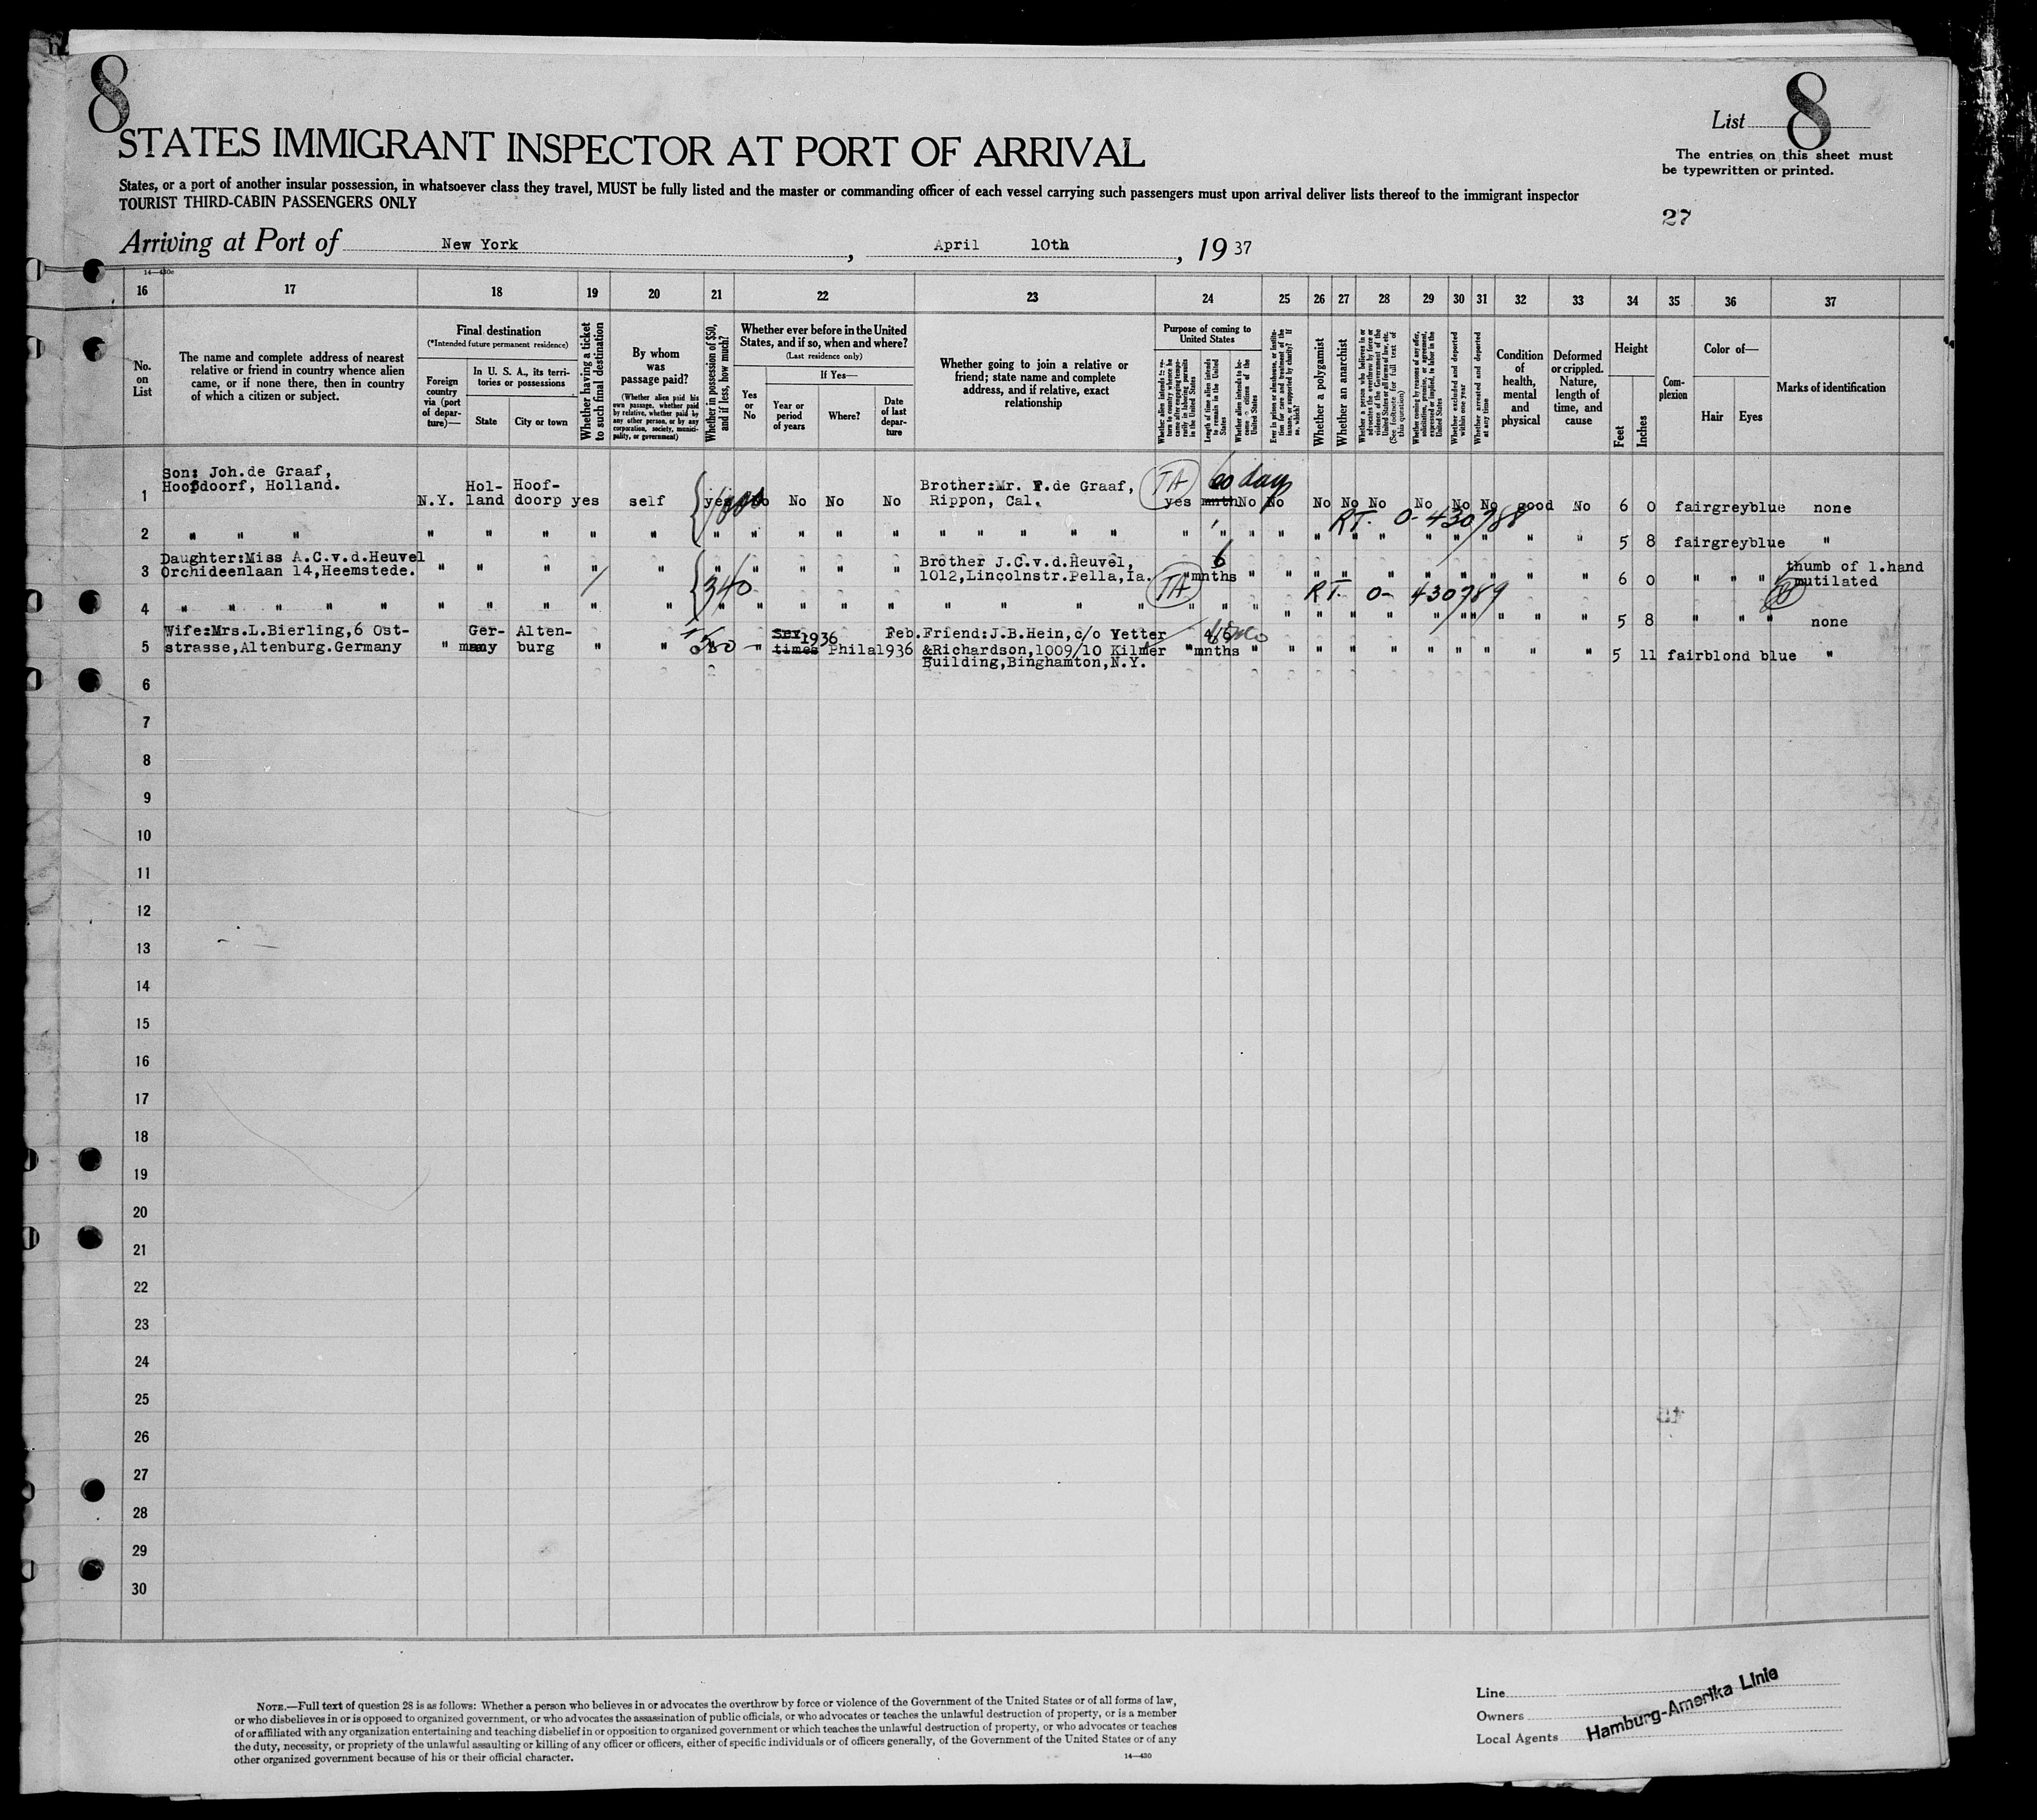 8
8
List
STATES IMMIGRANT INSPECTOR AT PORT OF ARRIVAL
The entries on this sheet must
be typewritten or printed.
States, or a port of another insular possession, in whatsoever class they travel, MUST be fully listed and the master or commanding officer of each vessel carrying such passengers must upon arrival deliver lists thereof to the immigrant inspector
TOURIST THIRD-CABIN PASSENGERS ONLY
27
Arriving at Port of New York, April 10th, 1937
16 17 18 19 20 21 22 23 24 25 26 27 28 29 30 31 32 33 34 35 36 37
No.
on
List
The name and complete address of nearest
relative or friend in country whence alien
came, or if none there, then in country
of which a citizen or subject.
Final destination
(*Intended future permanent residence)
Foreign
country
via (port
of depar-
ture)—
In U. S. A., its terri-
tories or possessions
State
City or town
Whether having a ticket
to such final destination
By whom
was
passage paid?
(Whether alien paid his
own passage, whether paid
by relative, whether paid by
any other person, or by any
corporation, society, munici-
pality, or government)
Whether in possession of $50,
and if less, how much?
Whether ever before in the United
States, and if so, when and where?
(Last residence only)
Yes
or
No
If Yes—
Year or
period
of years
Where?
Date
of last
depar-
ture
Whether going to join a relative or
friend; state name and complete
address, and if relative, exact
relationship
Purpose of coming to
United States
Length of time alien intends
to remain in the United
States
Whether alien intends to be-
come a citizen of the
United States
Whether a polygamist
Whether an anarchist
(See footnote for full text of
this question)
Whether excluded and deported
within one year
Whether arrested and deported
at any time
Condition
of
health,
mental
and
physical
Deformed
or crippled.
Nature,
length of
time, and
cause
Height
Feet
Inches
Com-
plexion
Color of—
Hair
Eyes
Marks of identification
Son: Joh.de Graaf,
Hoofdoorf, Holland.
1 N.Y. Hol-
land Hoof-
doorp yes self yes No No No Brother:Mr. F.de Graaf,
Rippon, Cal. TA yes 60 days mnth No No No No No No No No good No 6 0 fair grey blue none
RT. 0-430788
2 " " " " " " " " " " " " " " " 5 8 fair grey blue "
Daughter:Miss A.C.v.d.Heuvel
3 Orchideenlaan 14,Heemstede. " " " " " 340 " " " " Brother J.C.v.d.Heuvel,
1012,Lincolnstr.Pella,Ia. TA " 6 mnths " " " " " " " " " " 6 0 " " " thumb of l.hand
mutilated
RT. 0- 430789
4 " " " " " " " " " " " " " " " 5 8 " " " none
5 Wife:Mrs.L.Bierling,6 Ost-
strasse,Altenburg.Germany " Ger-
many Alten-
burg " " " 1936
times Phila Feb.
1936 Friend:J.B.Hein,c/o Vetter
&Richardson,1009/10 Kilmer
Building,Binghamton,N.Y. " mnths " " " " " " " " " " 5 11 fair blond blue "
6
7
8
9
10
11
12
13
14
15
16
17
18
19
20
21
22
23
24
25
26
27
28
29
30
NOTE.—Full text of question 28 is as follows: Whether a person who believes in or advocates the overthrow by force or violence of the Government of the United States or of all forms of law,
or who disbelieves in or is opposed to organized government, or who advocates the assassination of public officials, or who advocates or teaches the unlawful destruction of property, or is a member
of or affiliated with any organization entertaining and teaching disbelief in or opposition to organized government or which teaches the unlawful destruction of property, or who advocates or teaches
the duty, necessity, or propriety of the unlawful assaulting or killing of any officer or officers, either of specific individuals or of officers generally, of the Government of the United States or of any
other organized government because of his or their official character.
14—430
Line
Owners
Local Agents
Hamburg-Amerika Linie